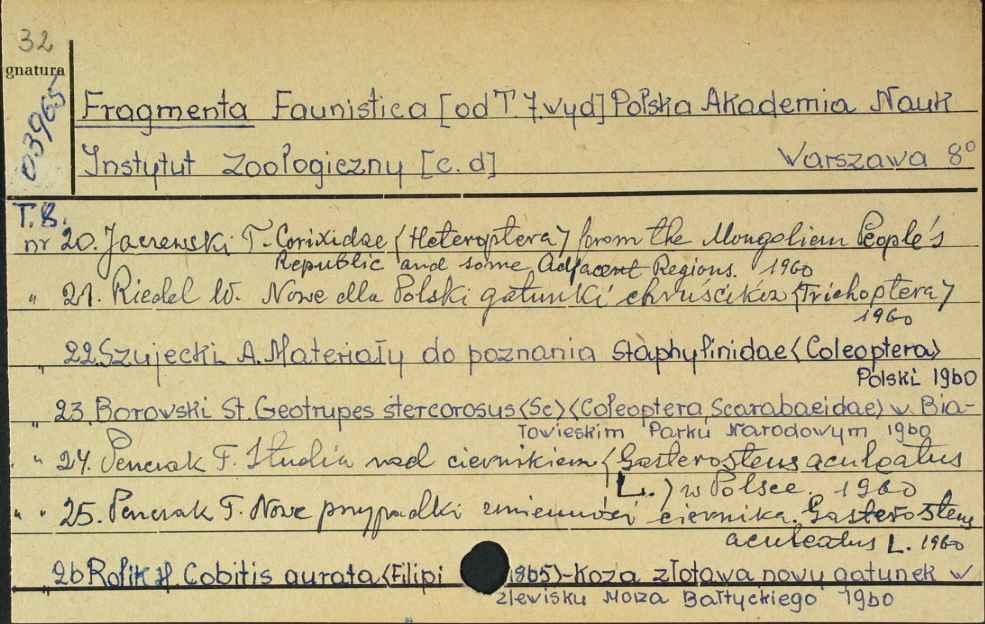 32
gnatura
03965
Fragmenta Faunistica [od T. 7. wyd] Polska Akademia Nauk
Instytut Zoologiczny [c. d] Warszawa 8°
T. 8.
nr 20. Jaczewski T. Corixidae (Heteroptera) forom the Mongolian People's
Republic and some Adjacent Regions. 1960
" 21. Riedel W. Nowe dla Polski gatunki chruścików (Trichoptera)
1960
" 22. Szujecki A. Materiały do poznania Staphylinidae (Coleoptera)
Polski 1960
" 23. Borowski St. Geotrupes stercorosus (Sc) (Coleoptera, Scarabaeidae) w Bia-
łowieskim Parku Narodowym 1960
" 24. Penczak T. Studia nad ciernikiem (Gasterosteus aculeatus
L.) w Polsce. 1960
" " 25. Penczak T. Nowe przypadki zmienności ciernika. Gasterosteus
aculeatus L. 1960
26 Rolik H. Cobitis aurata (Filipi 1865) - Koza złotawa nowy gatunek w
zlewisku Morza Bałtyckiego 1960
"